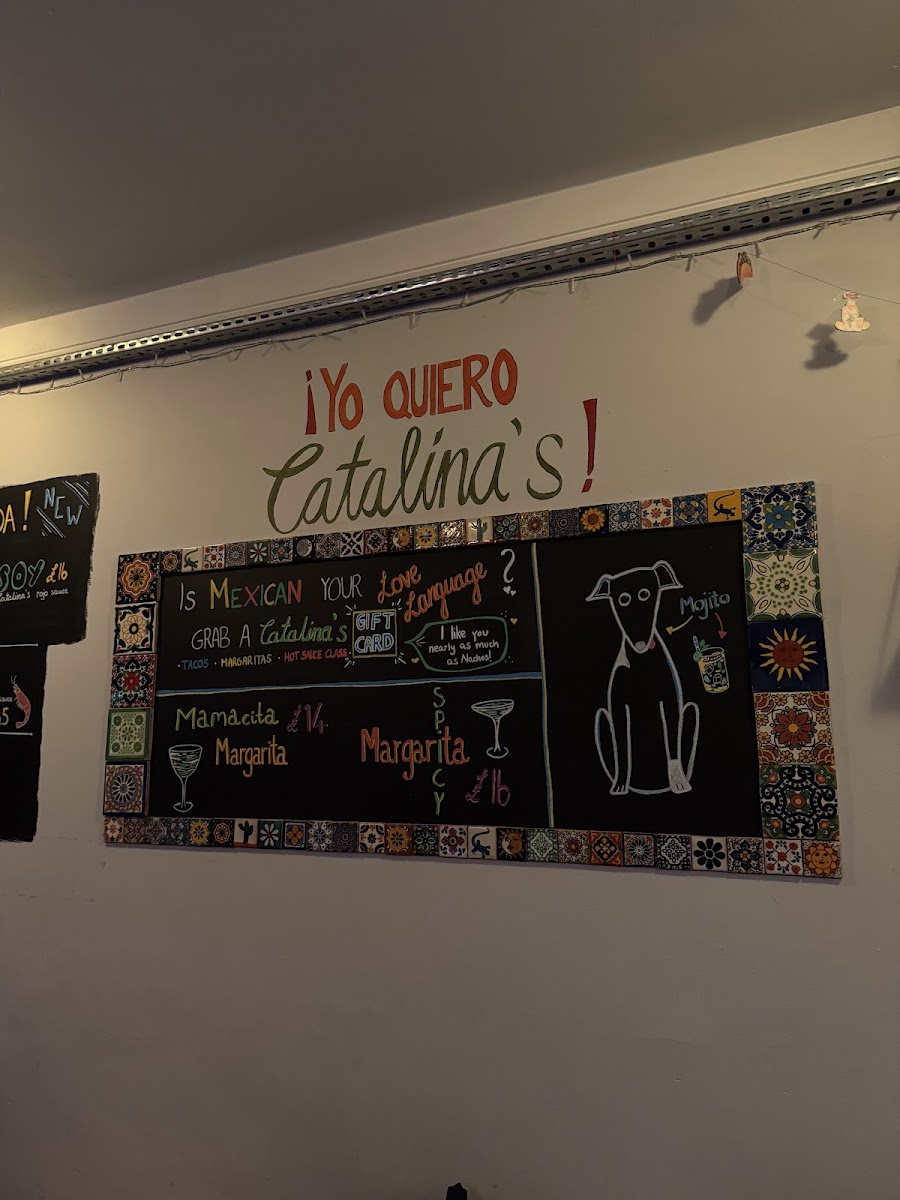 ¡YO QUIERO
Catalina's!
DA! NEW
SOY £16
Catalina's rojo sauce
IS MEXICAN YOUR Love Language?
GRAB A Catalina's GIFT CARD
· TACOS · MARGARITAS · HOT SAUCE CLASS
I like you
nearly as much
as Nachos!
MAMACITA £14
Margarita
SPICY
Margarita
£16
Mojito